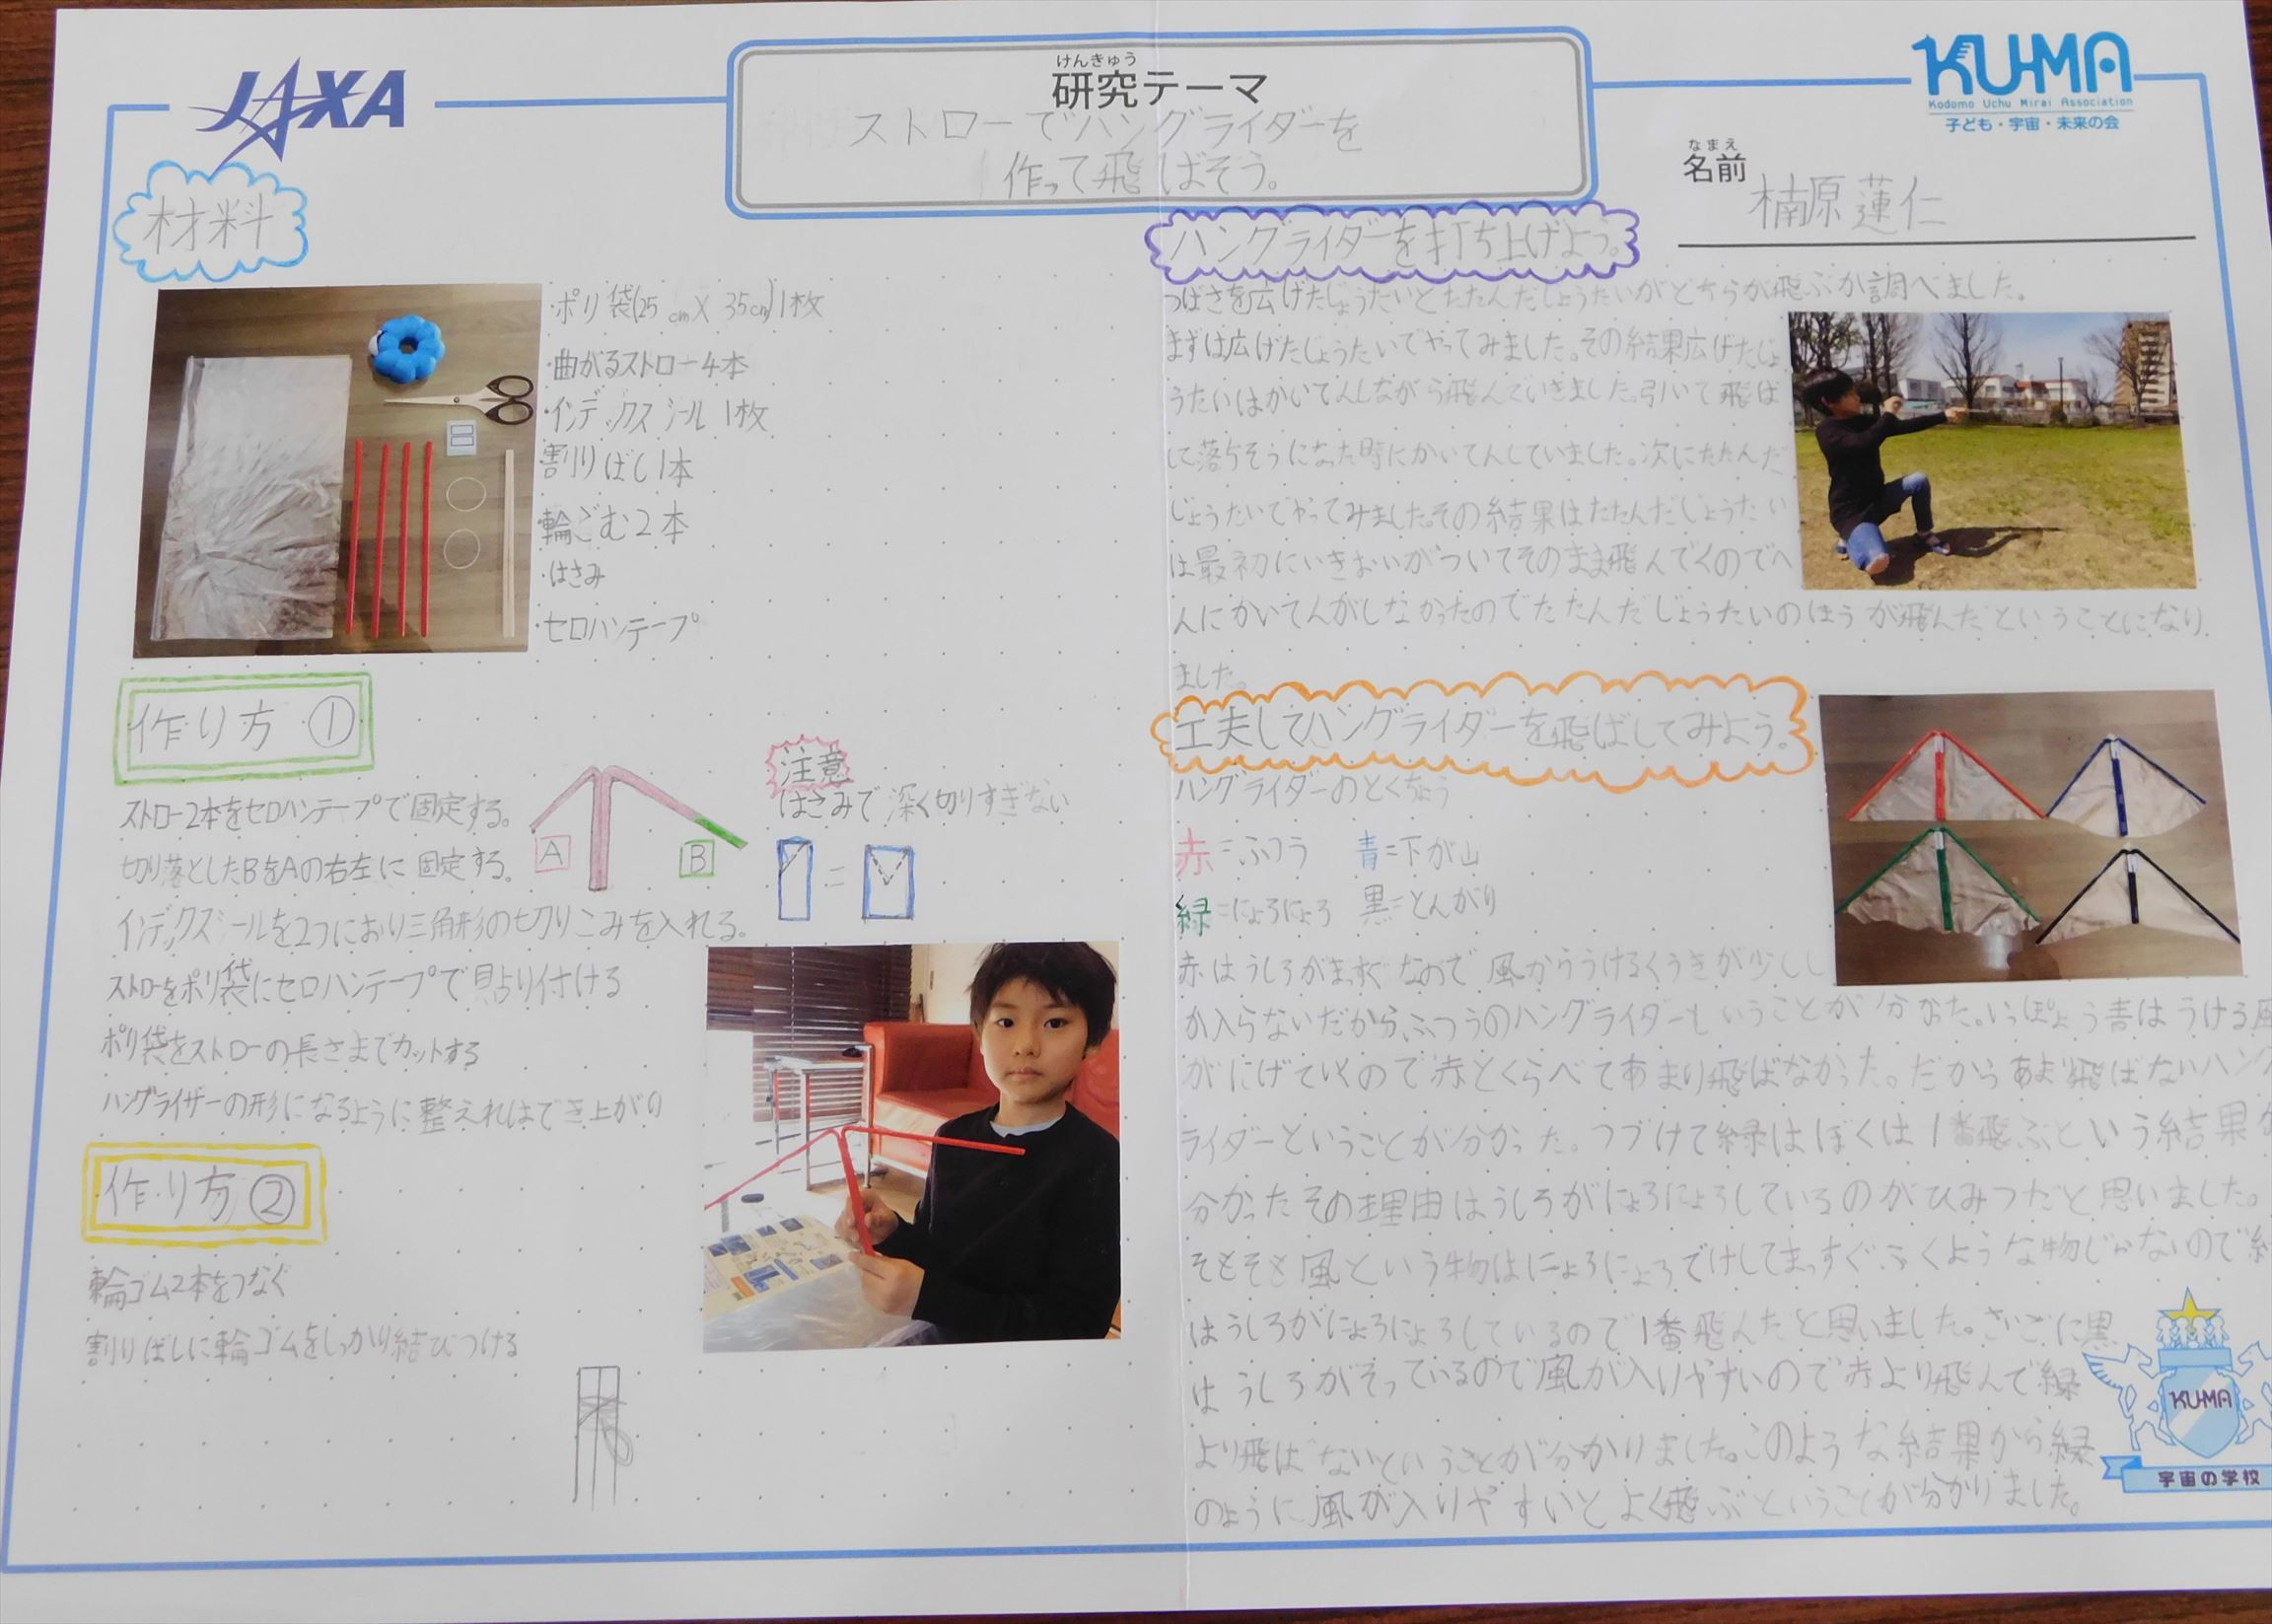 JAXA
けんきゅう
研究テーマ
ストローでハングライダーを
作って飛ばそう。
KUMA
Kodomo Uchu Mirai Association
子ども・宇宙・未来の会
なまえ
名前
楠原蓮仁
材料
・ポリ袋(25cm×35cm)1枚
・曲がるストロー4本
・インデックスシール 1枚
割りばし1本
輪ごむ2本
・はさみ
・セロハンテープ
作り方 ①
ストロー2本をセロハンテープで固定する。
切り落としたBをAの右左に固定する。
インデックスシールを2つにおり三角形の切りこみを入れる。
ストローをポリ袋にセロハンテープで貼り付ける
ポリ袋をストローの長さまでカットする
ハングライザーの形になるように整えればでき上がり
A
B
注意
はさみで深く切りすぎない
=
作り方②
輪ゴム2本をつなぐ
割りばしに輪ゴムをしっかり結びつける
ハングライダーを打ち上げよう。
つばさを広げたじょうたいとたたんだじょうたいがどちらが飛ぶか調べました。
まずは広げたじょうたいでやってみました。その結果広げたじょ
うたいはかいてんしながら飛んでいきました。引いて飛ば
して落ちそうになった時にかいてんしていました。次にたたんだ
じょうたいでやってみました。その結果はたたんだじょうたい
は最初にいきおいがついてそのまま飛んでくのでへ
んにかいてんがしなかったのでたたんだじょうたいのほうが飛んだということになり
ました。
工夫してハングライダーを飛ばしてみよう。
ハングライダーのとくちょう
赤=ふつう 青=下が山
緑=にょろにょろ 黒=とんがり
赤はうしろがまっすぐなので風からうけるくうきが少しし
か入らないだから、ふつうのハングライダーということが分かった。いっぽう青はうける風
がにげていくので赤とくらべてあまり飛ばなかった。だからあまり飛ばないハング
ライダーということが分かった。つづけて緑はぼくは1番飛ぶという結果が
分かったその理由はうしろがにょろにょろしているのがひみつだと思いました。
そもそも風という物はにょろにょろでけしてまっすぐふくような物じゃないので緑
はうしろがにょろにょろしているので1番飛んだと思いました。さいごに黒
はうしろがそっているので風が入りやすいので赤より飛んで緑
より飛ばないということが分かりました。このような結果から緑
のように風が入りやすいとよく飛ぶということが分かりました。
KUMA
宇宙の学校